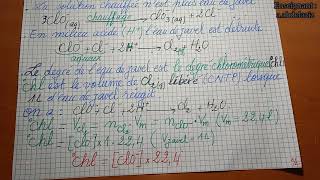 La solution chauffée n'est plus eau de javel
3ClO⁻(aq) chauffage → ClO₃⁻(aq) + 2Cl⁻
En milieu acide (H⁺) l'eau de javel est détruite
ClO⁻ + Cl⁻ + 2H⁺ → Cl₂ + H₂O
Le degré de l'eau de javel est le degré chlorométrique (°Chl)
°Chl est le volume de Cl₂(g) libéré (CNTP) lorsque
1L d'eau de javel réagit
on a: ClO⁻ + Cl⁻ + 2H⁺ → Cl₂ + H₂O
°Chl = Vcl₂ = n Cl₂ . Vm = nClO⁻ . Vm (Vm = 22,4 l)
°Chl = [ClO⁻] x 1 x 22,4 (Vjavel = 1L)
°Chl = [ClO⁻] x 22,4
Enseignant :